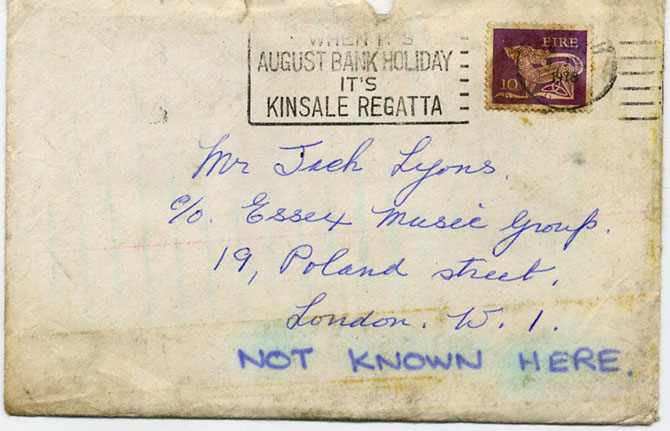 WHEN IT'S
AUGUST BANK HOLIDAY
IT'S
KINSALE REGATTA
EIRE
10
Mr Jack Lyons.
c/o. Essex Music Group.
19, Poland street,
London. W. 1.
NOT KNOWN HERE.